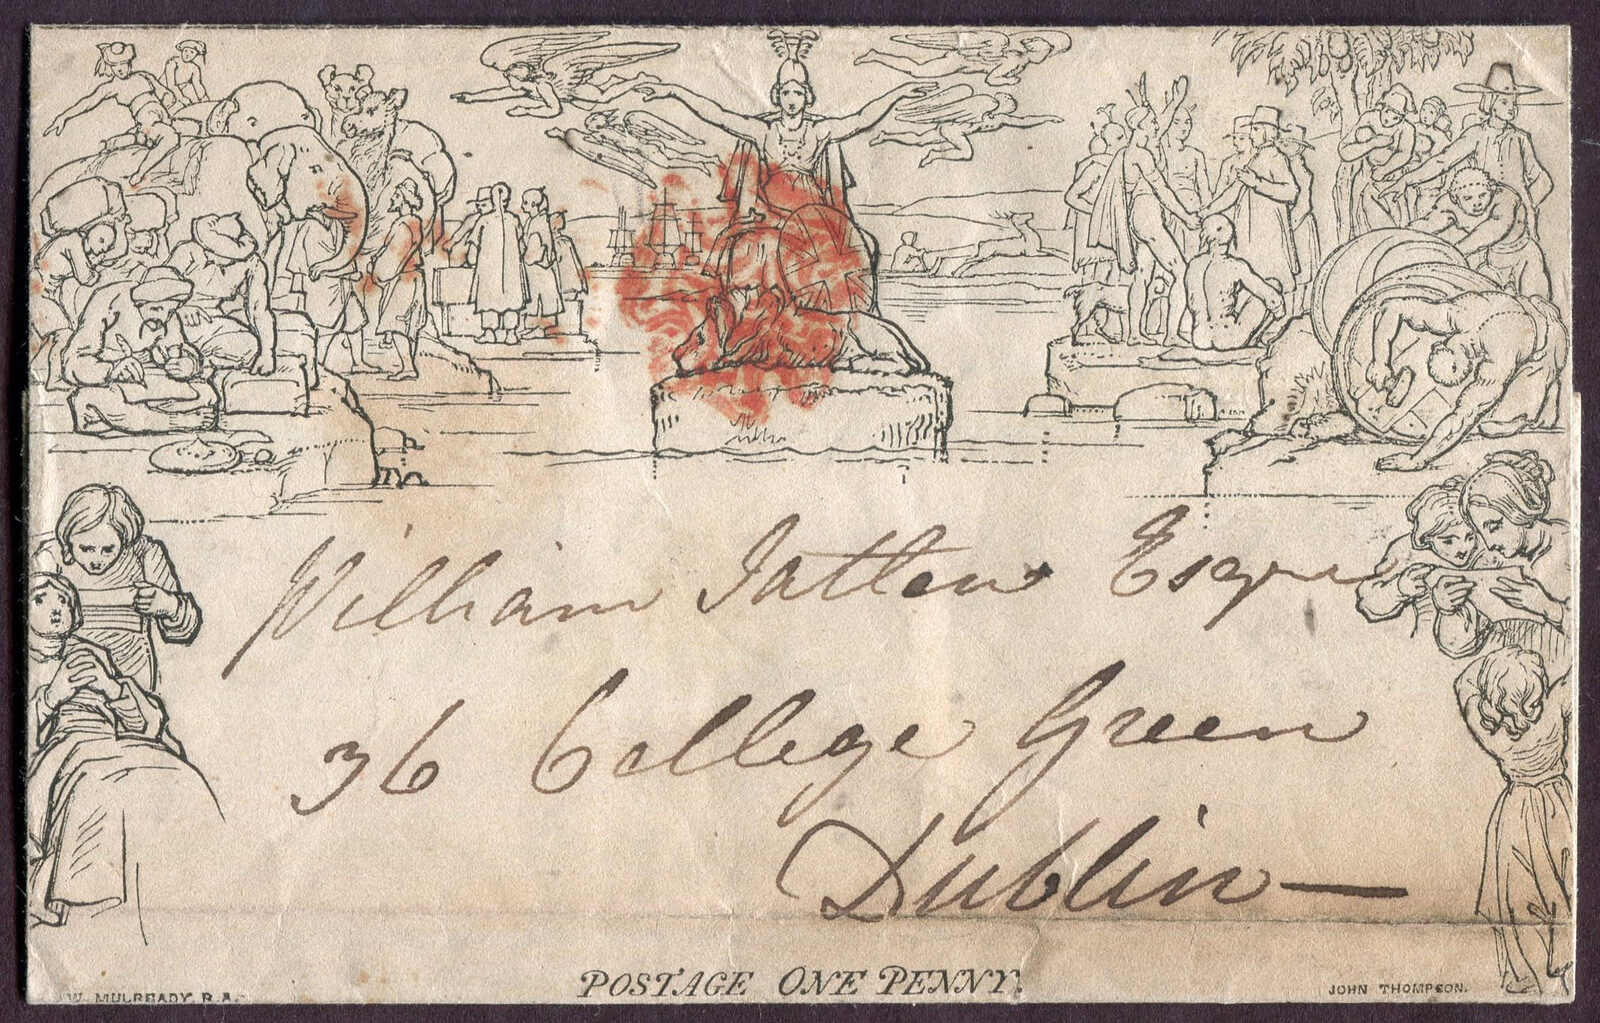 William Tatlow Esqre
36 College Green
Dublin
POSTAGE ONE PENNY.
W. MULREADY. R.A.
JOHN THOMPSON.